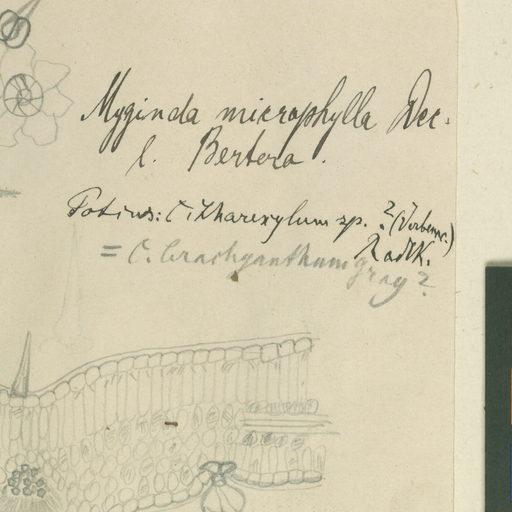 Myginda microphylla Dec.
l. Bertero.
Potius: Citharexylum sp. ? (Verbenac.)
Radlk.
= C. brachyanthum Gray?